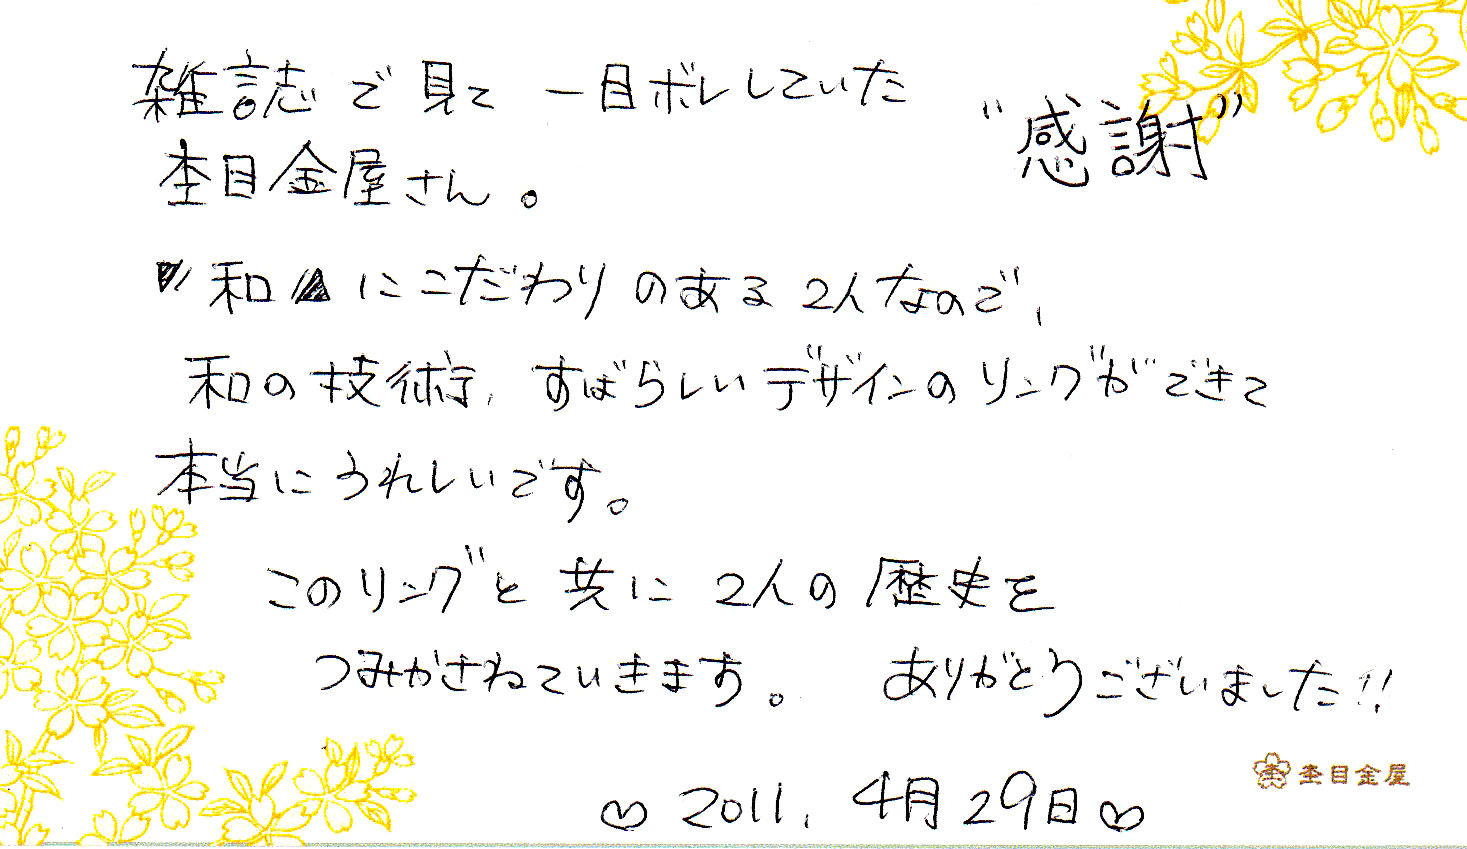 雑誌で見て 一目ボレしていた
"感謝"
杢目金屋さん。
"和" にこだわりのある2人なので、
和の技術、すばらしいデザインのリングができて
本当にうれしいです。
このリングと共に2人の歴史を
つみかさねていきます。 ありがとうございました!!
杢目金屋
♡ 2011. 4月29日 ♡